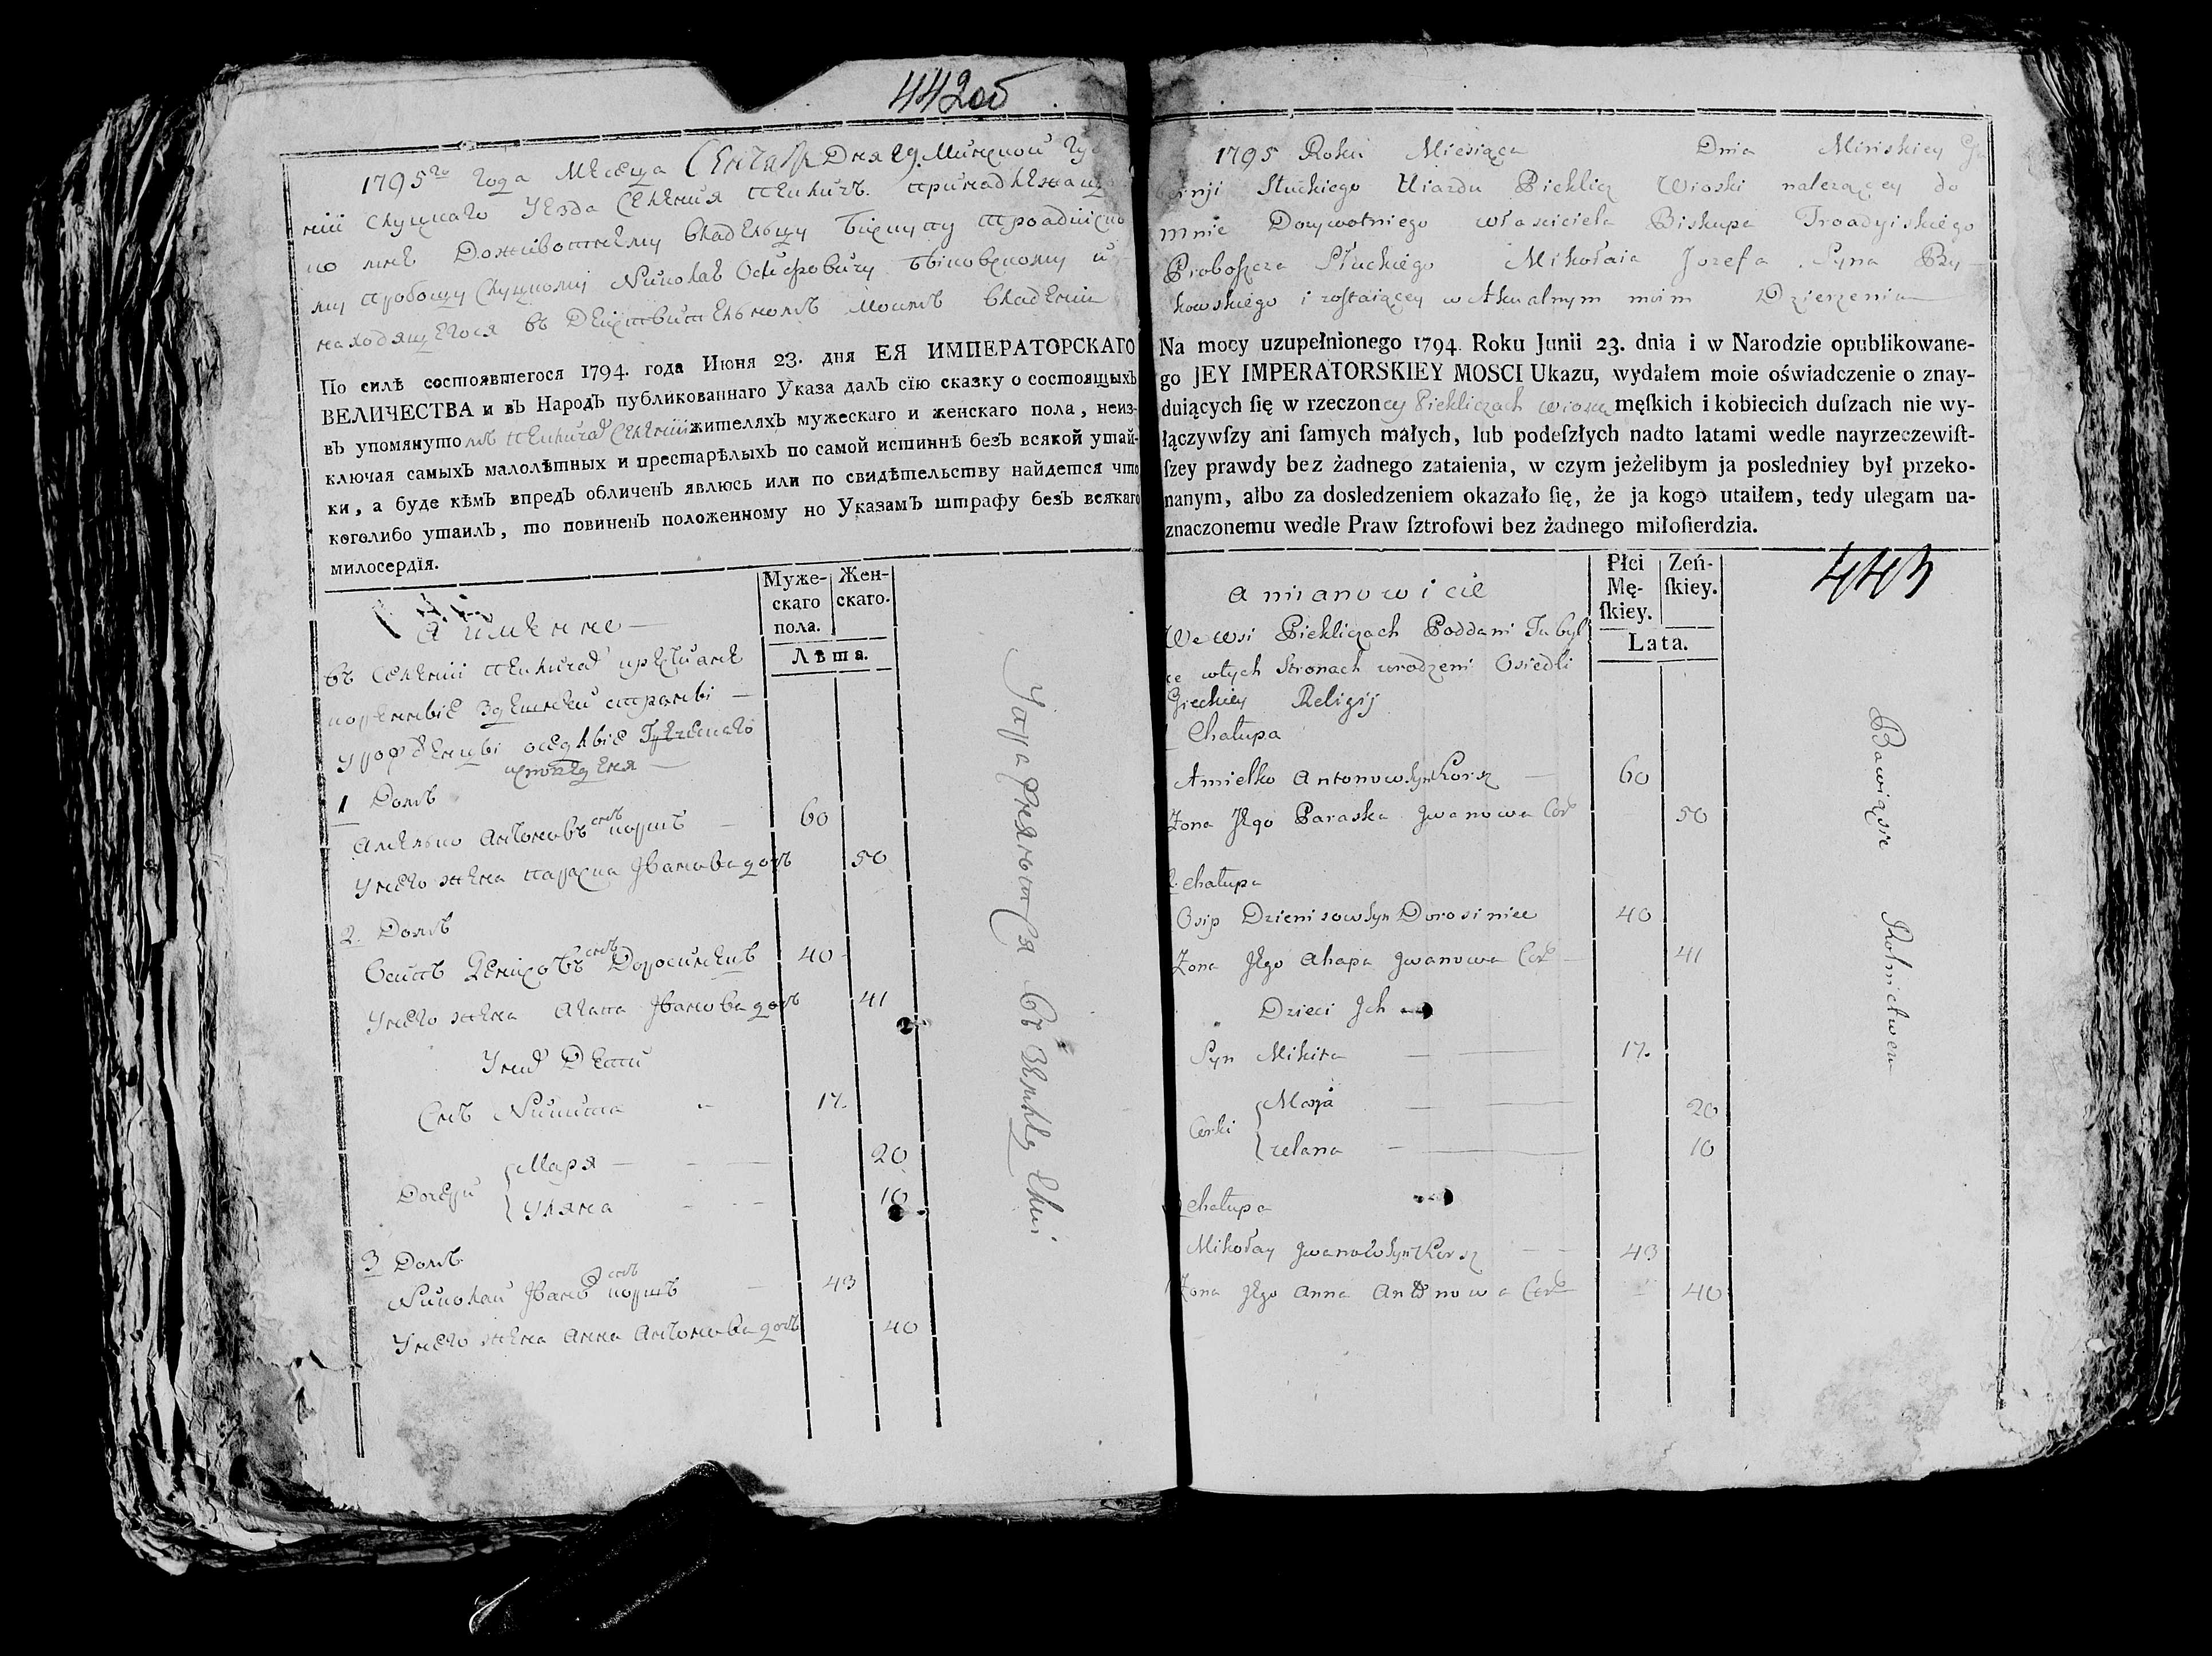 442об
1795го года Месеца Сентабр Дня 29. Минской Гу
нии Слуцкаго Уезда Селения Пекличъ принадлежащ
по мне Доживотнему владельцу Бискупу Троадийско
му Пробощу Слуцкому Николаю Осифовичу Быковскому и
находящегося въ Действительномъ моемъ владении
По силѣ состоявшегося 1794. года Июня 23. дня ЕЯ ИМПЕРАТОРСКАГО
ВЕЛИЧЕСТВА и въ Народъ публикованнаго Указа далъ сїю сказку о состоящыхъ
въ упомянутомъ Пекличах Селении жителяхъ мужескаго и женскаго пола, неиз-
ключая самыхъ малолѣтных и престарѣлыхъ по самой истиннѣ безъ всякой утай-
ки, а буде кѣмъ впредъ обличенъ явлюсь или по свидѣтельству найдется что
коголибо утаилъ, то повиненъ положенному по Указамъ штрафу безъ всякаго
милосердїя.
Муже-
скаго
пола.
Жен-
скаго.
Лѣта.
а имянне
въ Селении Пекличах крестиане
коренные здешней страны
урожденцы оседлые Греческаго
исповедения
1 Домъ
Амелько Антоновъ снъ Коршъ — 60
У него жена Параска Иванова дочъ 50
2. Домъ
Осипъ Денисовъ снъ Доросинецъ 40
У него жена Агапа Иванова дочъ 41
У них Дети
Снъ Никита 17.
Дочери
Маря — 20
Уляна 10
3 Домъ
Николай Иванов снъ Коршъ 43
У него жена Анна Антонова дочъ 40
Упражняются въ земледелии
1795 Roku Miesiąca Dnia Minskiey Gu
rnji Słuckiego Uiazdu Pieklicz Wioski nalezącey do
mnie Dożywotniego własciciela Biskupa Troadyiskiego
Proboszcza Słuckiego Mikołaia Jozefa Syna By-
kowskiego i zostaiącey w Aktualnym moim Dzierzeniu
Na mocy uzupełnionego 1794. Roku Junii 23. dnia i w Narodzie opublikowane-
go JEY IMPERATORSKIEY MOSCI Ukazu, wydałem moie oświadczenie o znay-
duiących ſię w rzeczoney Piekliczach wiosce męſkich i kobiecich duſzach nie wy-
łączywſzy ani ſamych małych, lub podeſzłych nadto latami wedle nayrzeczewiſt-
ſzey prawdy bez żadnego zataienia, w czym jeżelibym ja posledniey był przeko-
nanym, albo za dosledzeniem okazało ſię, że ja kogo utaiłem, tedy ulegam na-
znaczonemu wedle Praw ſztrofowi bez żadnego miłoſierdzia.
443
Płci
Mę-
ſkiey.
Zeń-
ſkiey.
Lata.
a mianowicie
We wsi Piekliczach Poddani Tubyl
ce wtych Stronach urodzeni Osiedli
Greckiey Religij
Chałupa
Amielko Antonow Syn Korsz — 60
Zona Jego Paraska Jwanowa Cor 50
2. Chałupa
Osip Dzienisow Syn Dorosiniec 40
Zona Jego Ahapa Jwanowa Cor — 41
Dzieci Jch
Syn Mikita — 17.
Corki
Marja — 20
relana — 10
Chałupa
Mikołay Jwanow Syn Korsz — 43
Zona Jego Anna Antonowa Cor 40
Bawiąsie Rolnictwem